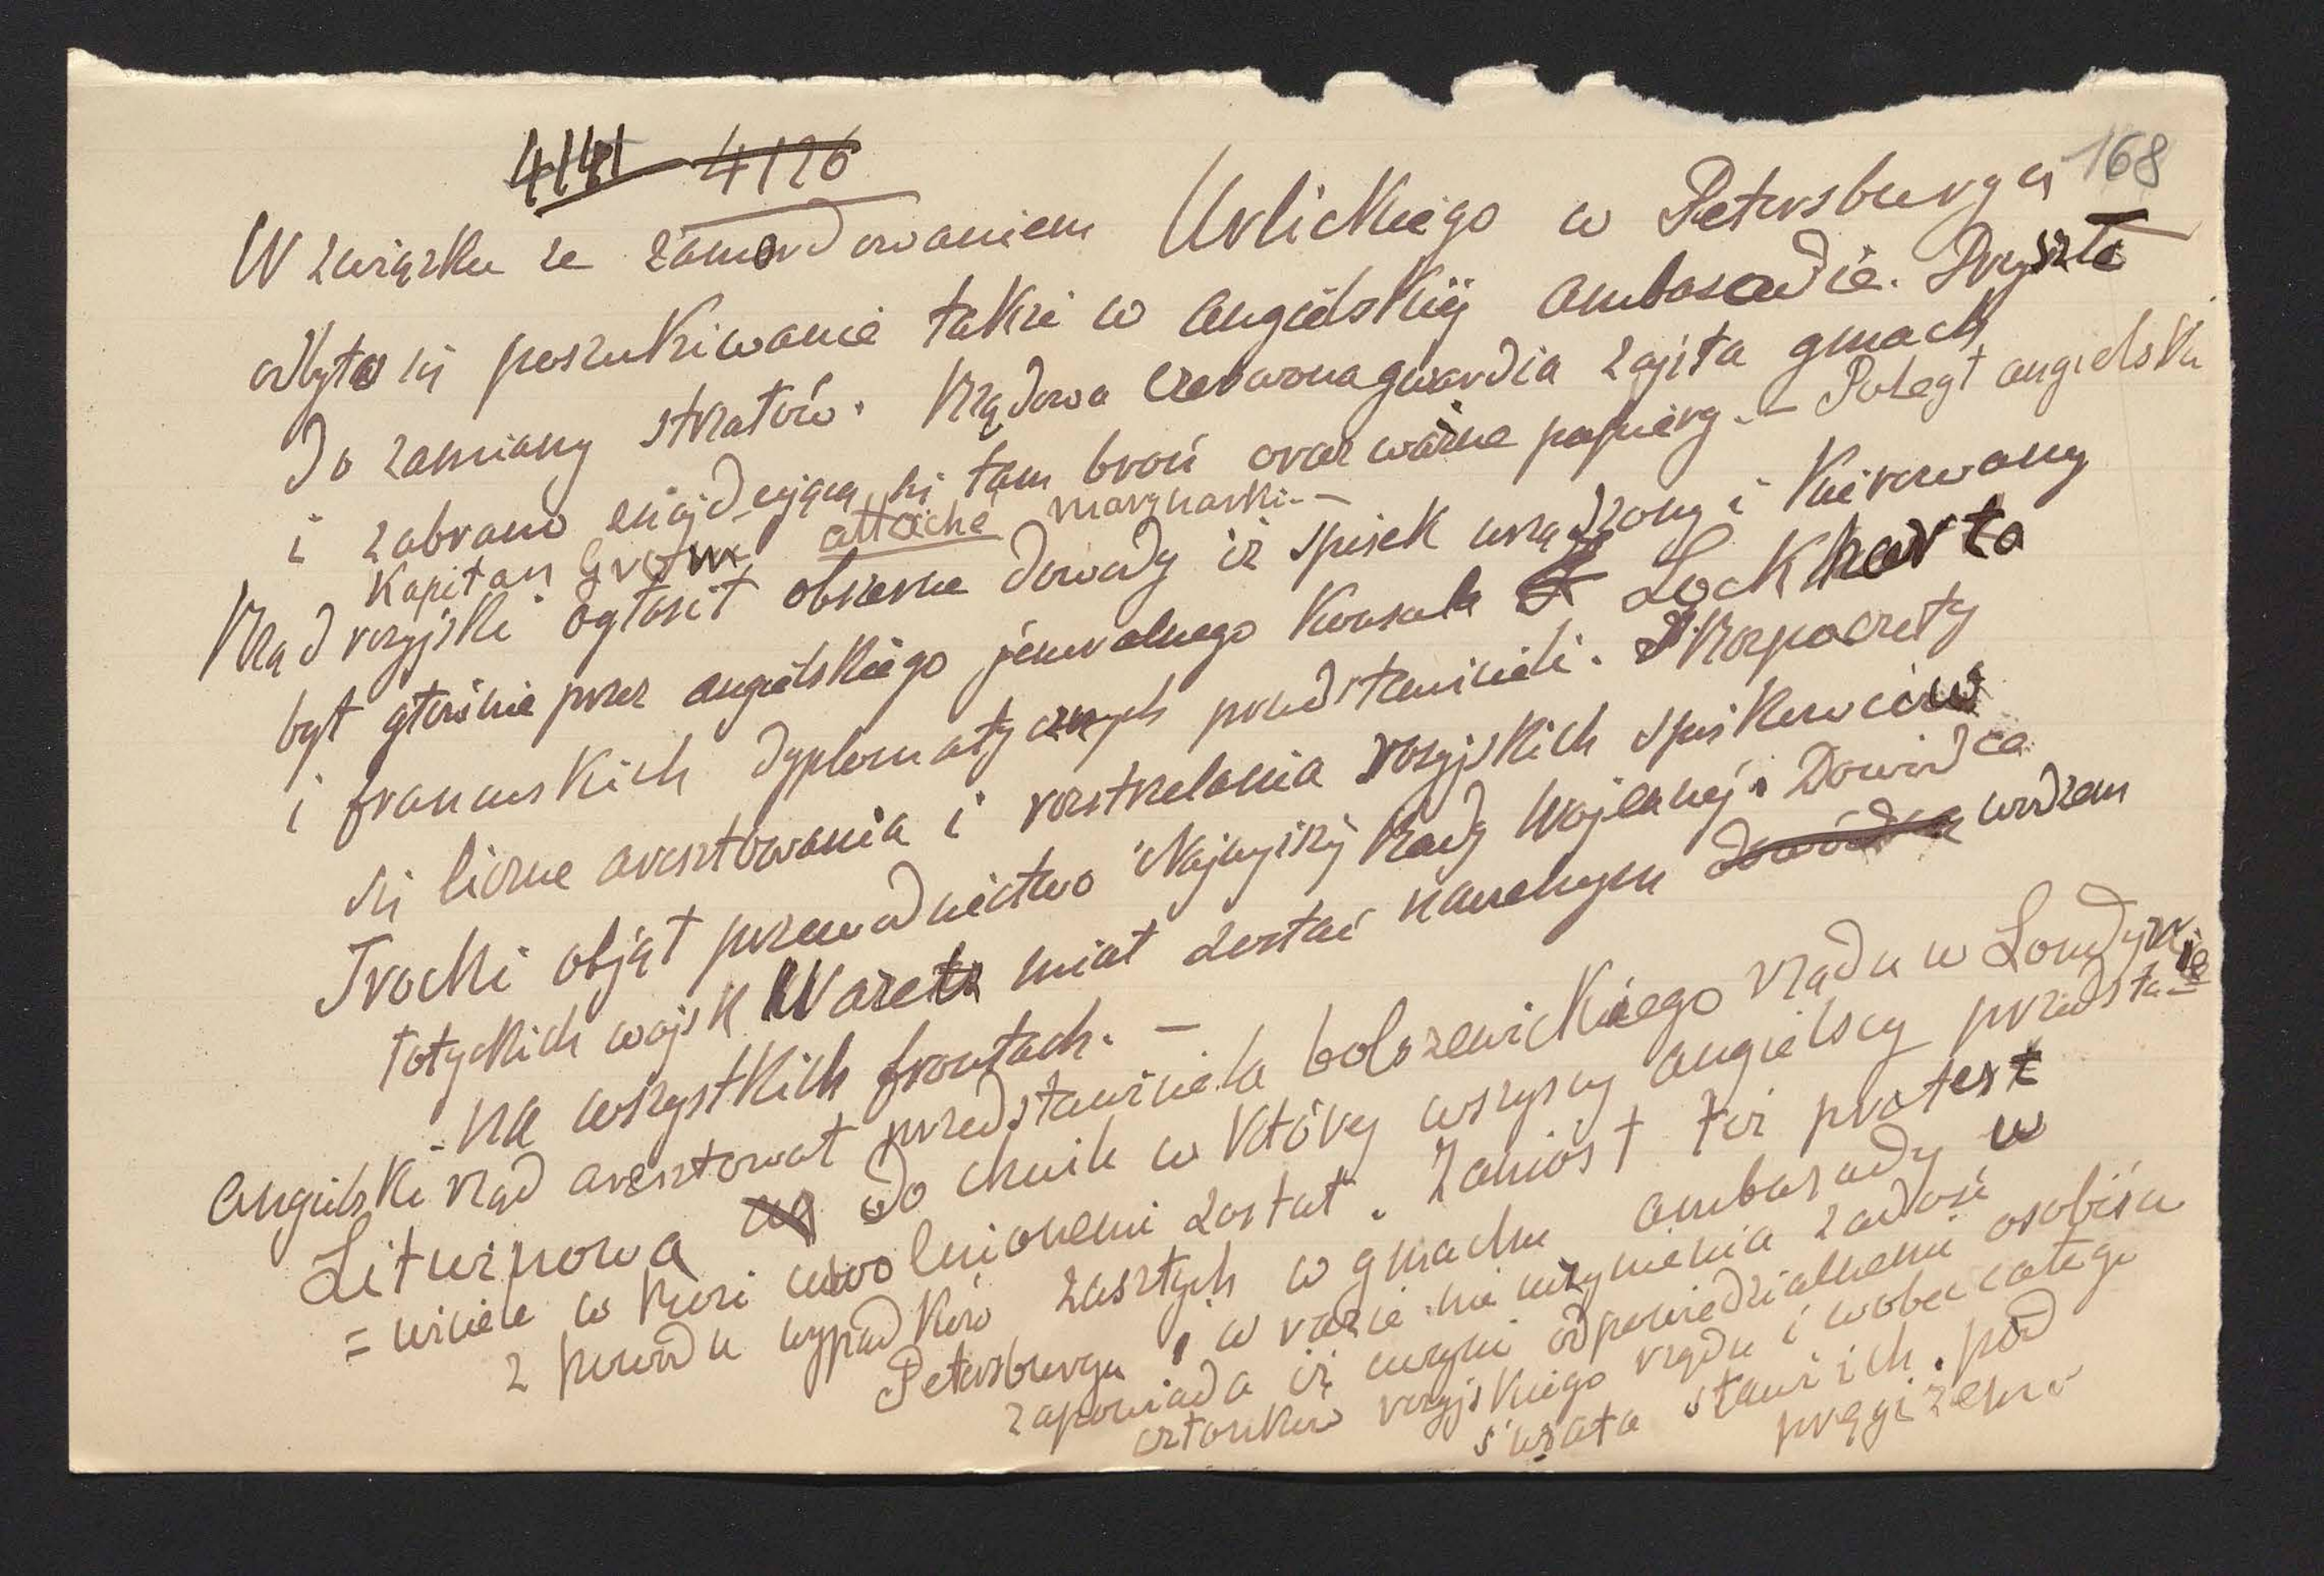 4141 4126
168
W związku ze zamordowaniem Urlickiego w Petersburgu
odbyto się poszukiwanie także w angielskiej ambasadzie. Przyszło
do zamiany strzałów. Rządowa czerwona gwardia zajęta gmach
i zabrano znajdującą się tam broń oraz ważne papiery. – Poległ angielski
Kapitan Grom attaché marynarki. –
Rząd rosyjski ogłosił obszerne dowody iż spisek urządzony i kierowany
był głównie przez angielskiego jeneralnego konsula Lockharta
i francuskich dyplomatycznych przedstawicieli. Rozpoczęty
się liczne aresztowania i rozstrzelania rosyjskich spiskowców
Trocki objął przewodnictwo Najwyższej Rady Wojennej. Dowódca
łotyckich wojsk Wazets miał zostać naczelnym dowódcą wodzem
na wszystkich frontach. –
Angielski rząd aresztował przedstawiciela bolszewickiego rządu w Londynie
Litwinowa do chwili w której wszyscy angielscy przedsta-
= wiciele w Rosi uwolnionemi został. Zaniósł też protest
z powodu wypadków zaszłych w gmachu ambasady w
Petersburgu, w razie nie uczynienia zadość
zapowiada iż uczyni odpowiedzialnemi osobiście
członków rosyjskiego rządu i wobec całego
świata stawi ich pod
pręgierzem.